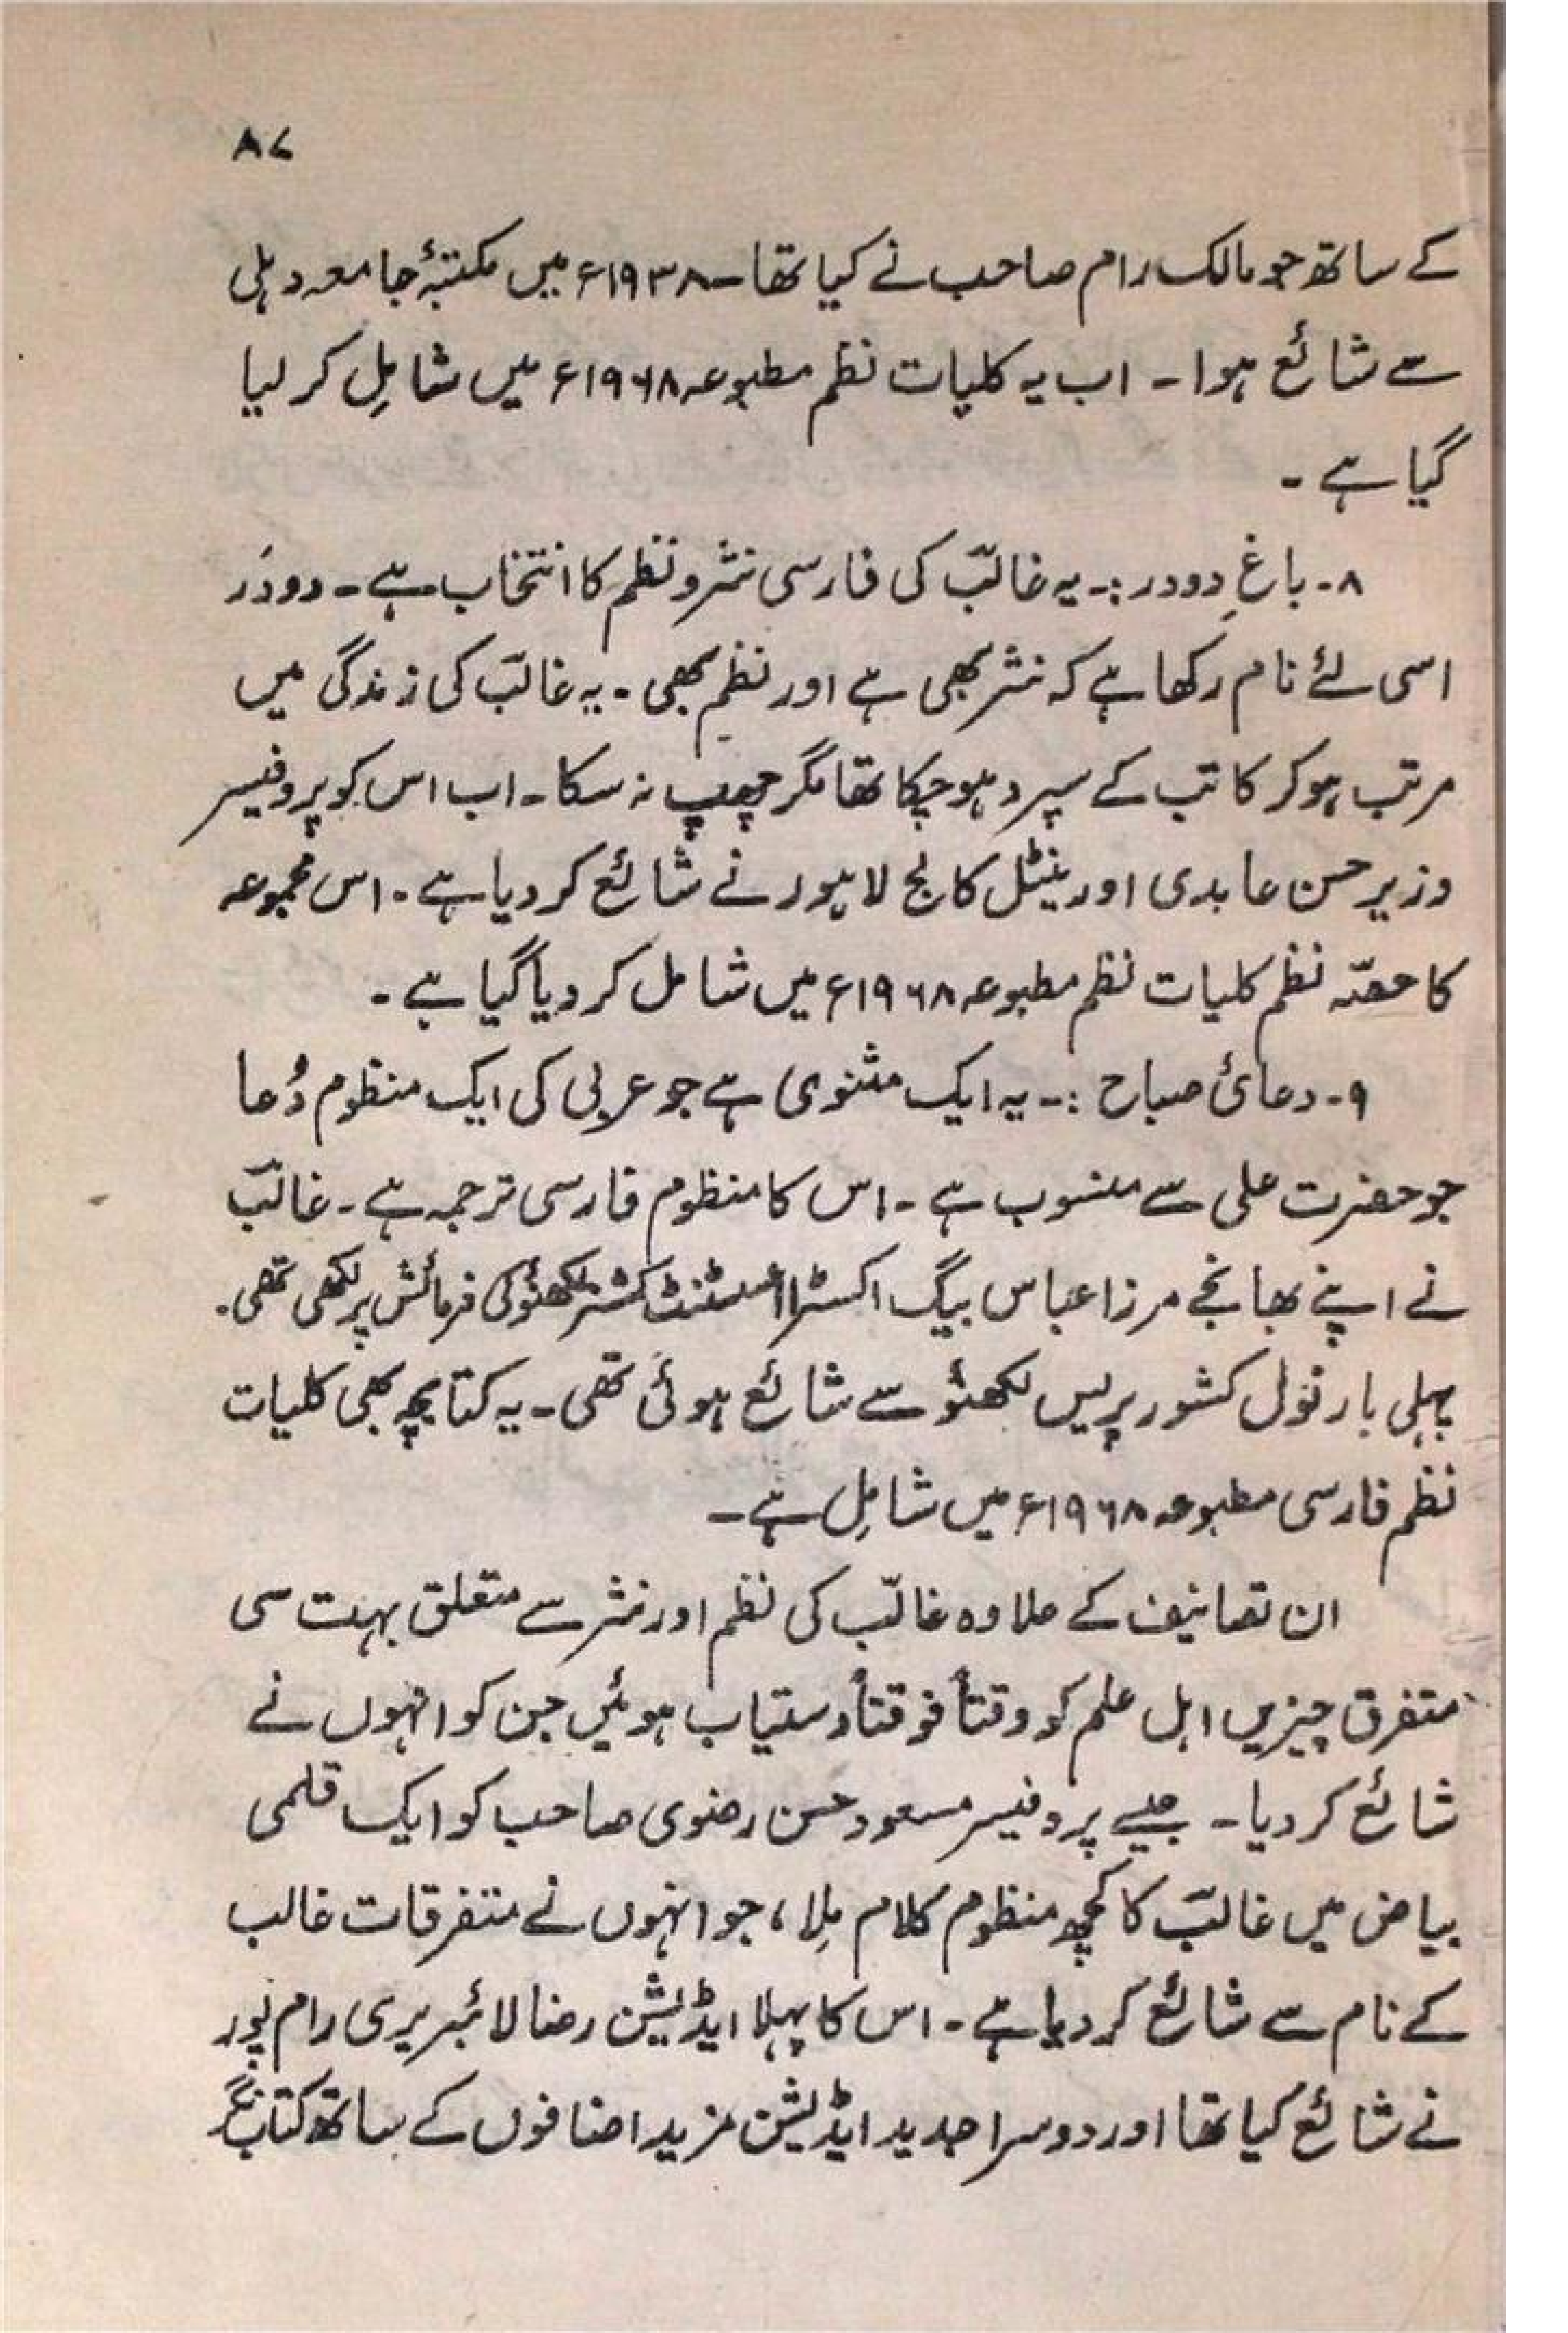 ۸۷
کے ساتھ جو مالک رام صاحب نے کیا تھا۔ ۱۹۳۸ء میں مکتبۂ جامعہ دہلی
سے شائع ہوا۔ اب یہ کلیات نظم مطبوعہ ۱۹۶۸ء میں شامِل کر لیا
گیا ہے۔
۸۔ باغِ دودر :۔ یہ غالبؔ کی فارسی نثر و نظم کا انتخاب ہے۔ دودَر
اسی لئے نام رکھا ہے کہ نثر بھی ہے اور نظم بھی۔ یہ غالبؔ کی زندگی میں
مرتب ہو کر کاتب کے سپرد ہو چکا تھا مگر چھپ نہ سکا۔ اب اس کو پروفیسر
وزیر حسن عابدی اورینٹل کالج لاہور نے شائع کر دیا ہے۔ اس مجموعہ
کا حصّہ نظم کلیات نظم مطبوعہ ۱۹۶۸ء میں شامل کر دیا گیا ہے۔
۹۔ دعائ صباح :۔ یہ ایک مثنوی ہے جو عربی کی ایک منظوم دُعا
جو حضرت علی سے منسوب ہے۔ اس کا منظوم فارسی ترجمہ ہے۔ غالبؔ
نے اپنے بھانجے مرزا عباس بیگ اکسٹرا اسسٹنٹ کمشنر لکھنؤ کی فرمائش پر لکھی تھی۔
پہلی بار نول کشور پریس لکھنؤ سے شائع ہوئی تھی۔ یہ کتابچہ بھی کلیات
نظم فارسی مطبوعہ ۱۹۶۸ء میں شامِل ہے۔
ان تصانیف کے علاوہ غالبؔ کی نظم اور نثر سے متعلق بہت سی
متفرق چیزیں اہل علم کو وقتاً فوقتاً دستیاب ہوئیں جن کو انہوں نے
شائع کر دیا۔ جیسے پروفیسر مسعود حسن رضوی صاحب کو ایک قلمی
بیاض میں غالبؔ کا کچھ منظوم کلام مِلا، جو انہوں نے متفرقات غالب
کے نام سے شائع کر دیا ہے۔ اس کا پہلا ایڈیشن رضا لائبریری رام پور
نے شائع کیا تھا اور دوسرا جدید ایڈیشن مزید اضافوں کے ساتھ کتاب نگر